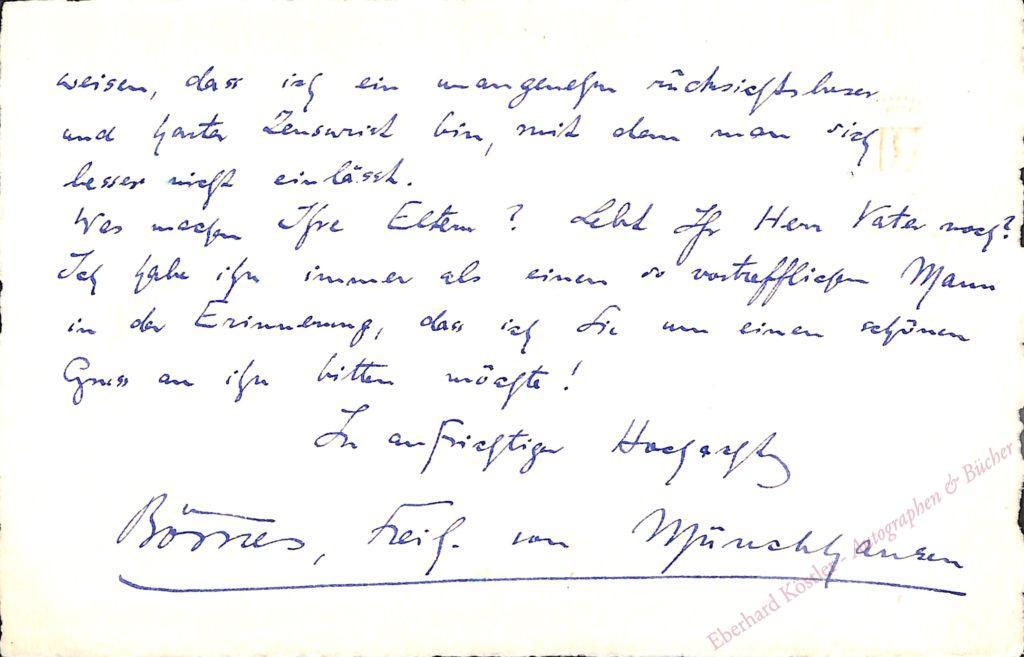 weisen, dass ich ein unangenehm rücksichtsloser
und harter Zensurist bin, mit dem man sich
besser nicht einlässt.
Was machen Ihre Eltern? Lebt Ihr Herr Vater noch?
Ich habe ihn immer als einen so vortrefflichen Mann
in der Erinnerung, dass ich Sie um einen schönen
Gruss an ihn bitten möchte!
In aufrichtiger Hochachtg
Börries, Freih. von Münchhausen
Eberhard Köstler - Autographen & Bücher